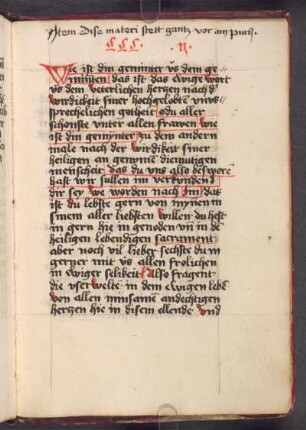 Item Dise materi stett gantz vor am puch.
Wie ist din geminter vs dem ge
minten das ist das ewige wort
vs dem veterlichen hertzen nach d
wirdickeit siner hochgelobten vnus
sprechelichen gotheit o du aller
schönste vnter allen frawen wie
ist din geminter zu dem andern
male nach der wirdikeit siner
heiligen an genomne diemutigen
menscheit das du vns also besworē
hast wir sullen im verkunden
dir sey we worden nach im da ist
du lebste gern von mynen in
sinem aller liebsten willen du hest
in gern hie in genoden vn̄ in de
heiligen lebendigen sacrament
aber noch vil lieber sechste du in
gerper mit vs allen frolichen
in ewiger selikeit Also fragent
die vserwelte in dem ewigen lebē
von allen minsame andechtigen
hertzen hie in disem ellende vnd